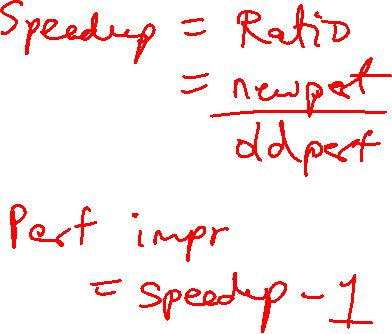 Speedup = Ratio
= newperf
oldperf
Perf impr
= speedup - 1